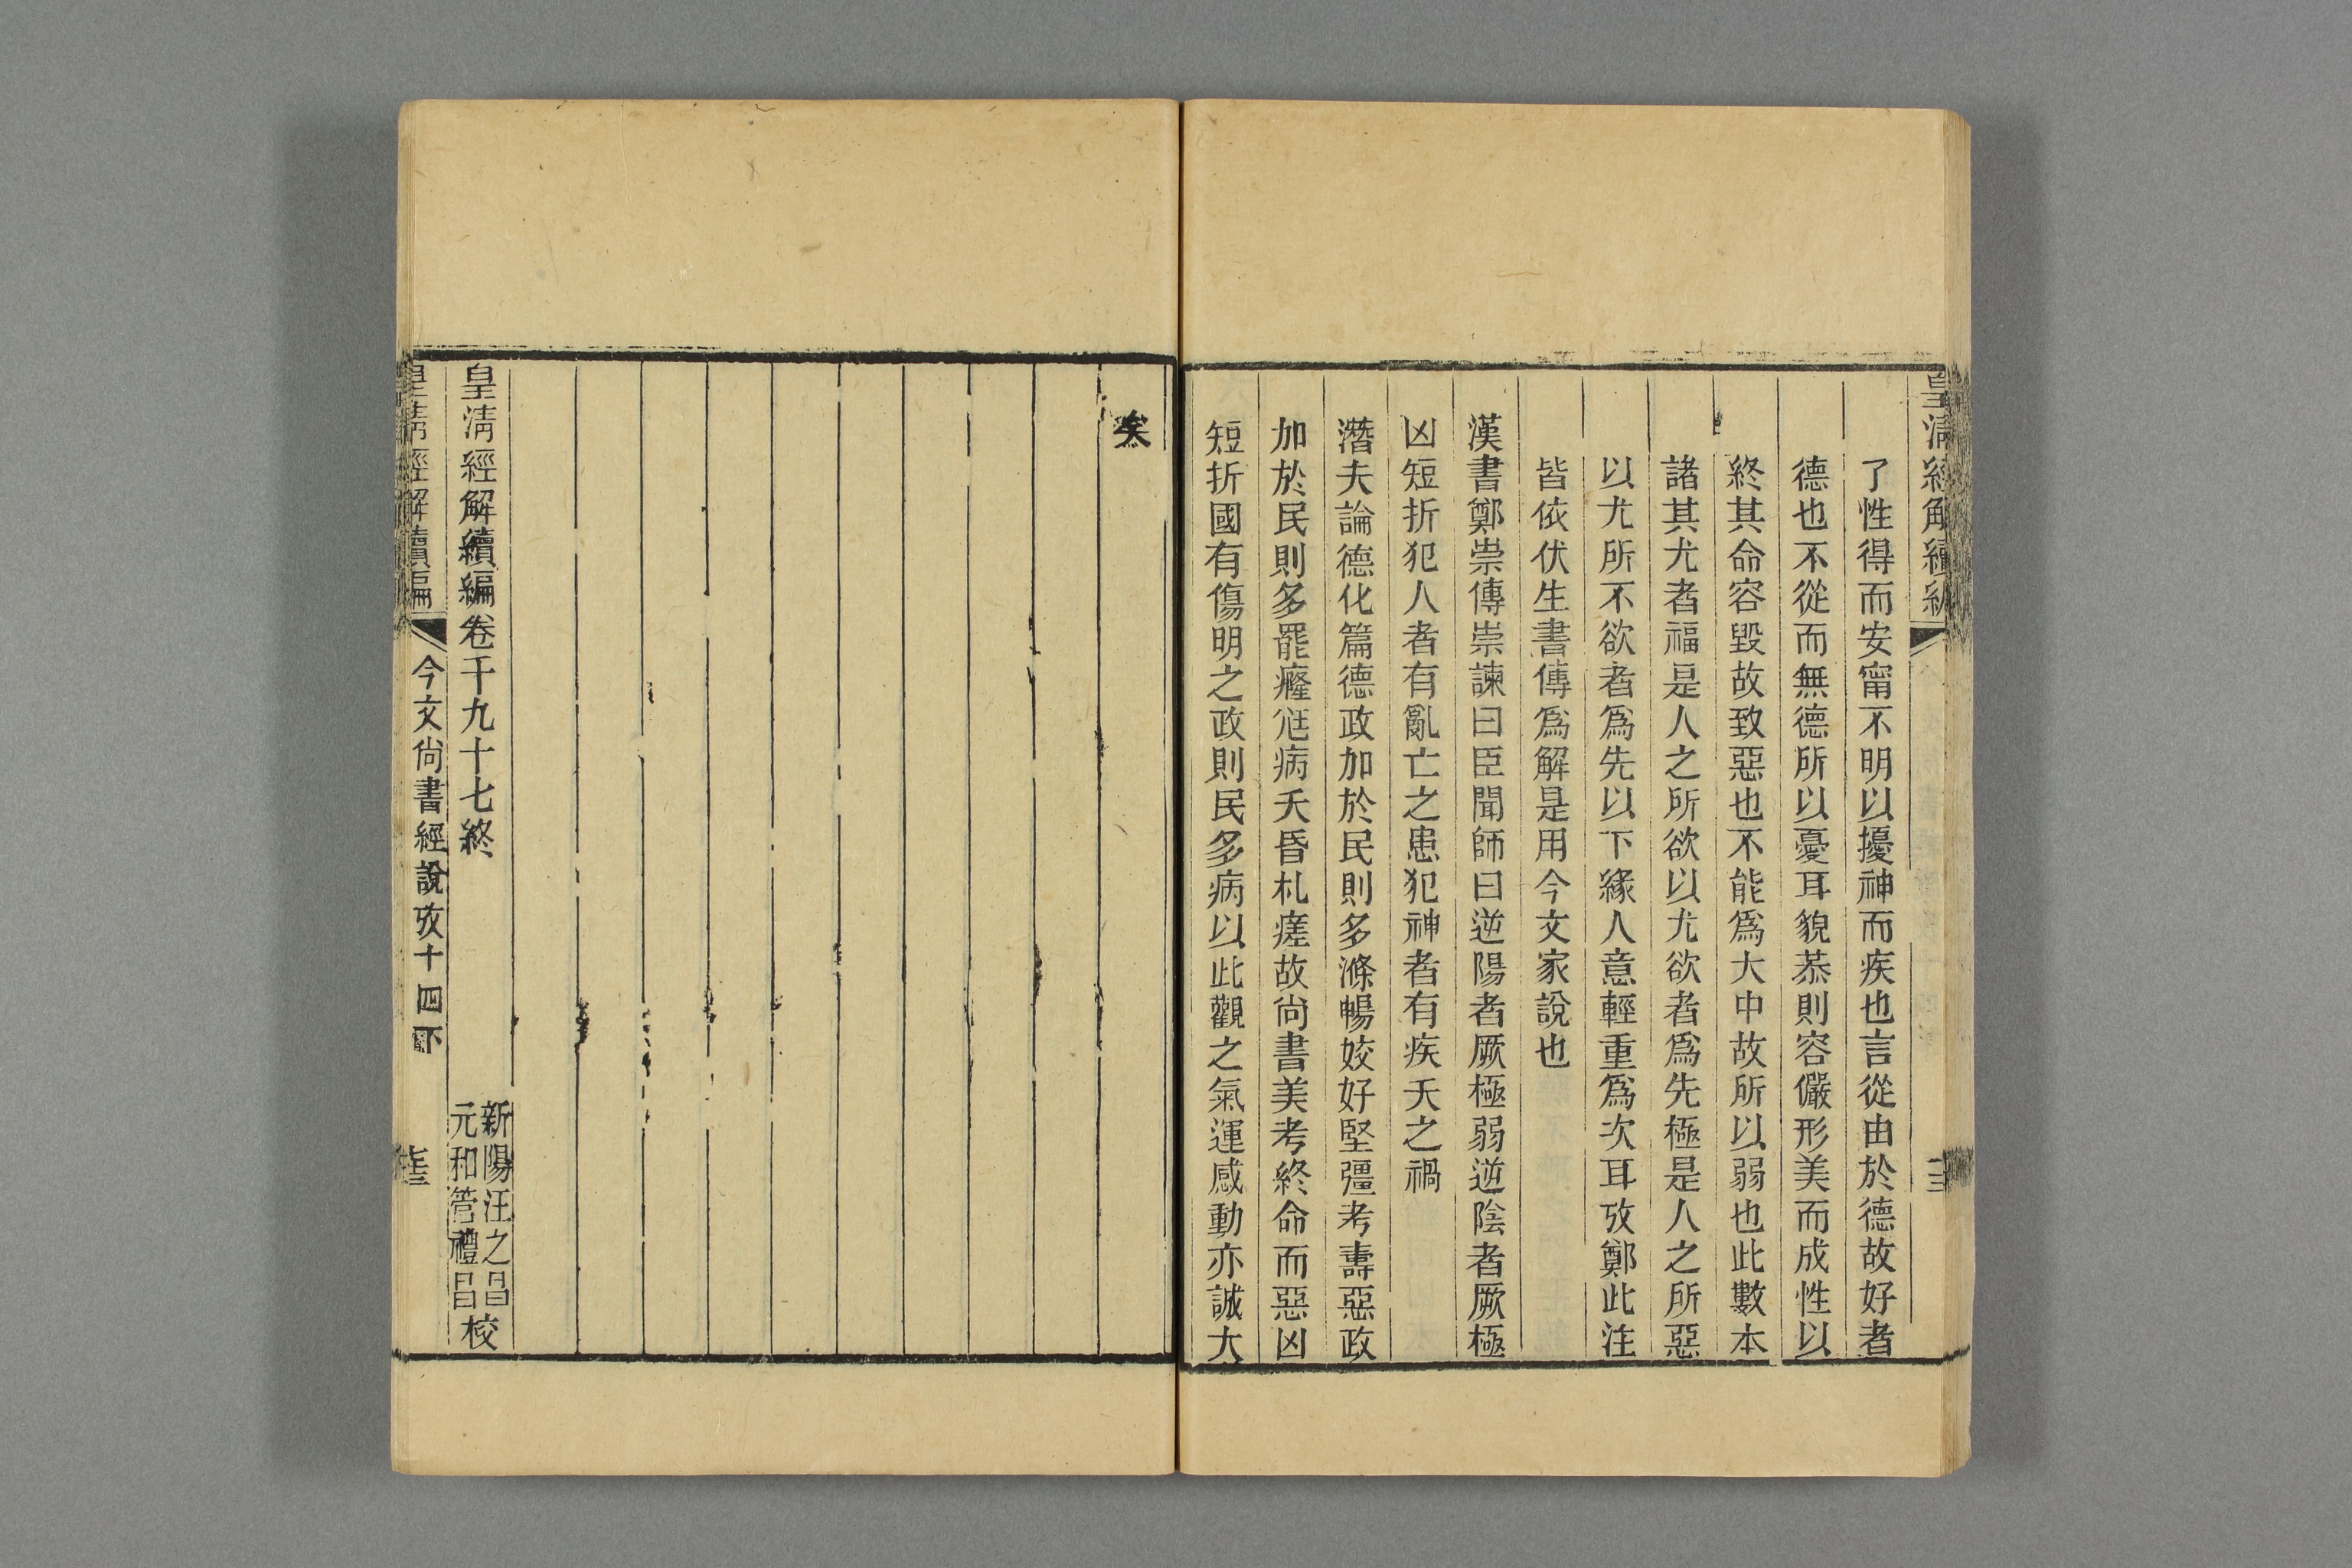 皇清經解續編
了性得而安甯不明以擾神而疾也言從由於德故好者
德也不從而無德所以憂耳貌恭則容儼形美而成性以
終其命容毀故致惡也不能爲大中故所以弱也此數本
諸其尤者福是人之所欲以尤欲者爲先極是人之所惡
以尤所不欲者爲先以下緣人意輕重爲次耳攷鄭此注
皆依伏生書傳爲解是用今文家說也
漢書鄭崇傳崇諫曰臣聞師曰逆陽者厥極弱逆陰者厥極
凶短折犯人者有亂亡之患犯神者有疾夭之禍
潛夫論德化篇德政加於民則多滌暢姣好堅彊考壽惡政
加於民則多罷癃尫病夭昏札瘥故尚書美考終命而惡凶
短折國有傷明之政則民多病以此觀之氣運感動亦誠大
矣
皇清經解續編卷千九十七終
新陽汪之昌
元和管禮昌
校
皇清經解續編
今文尚書經說攷十四下